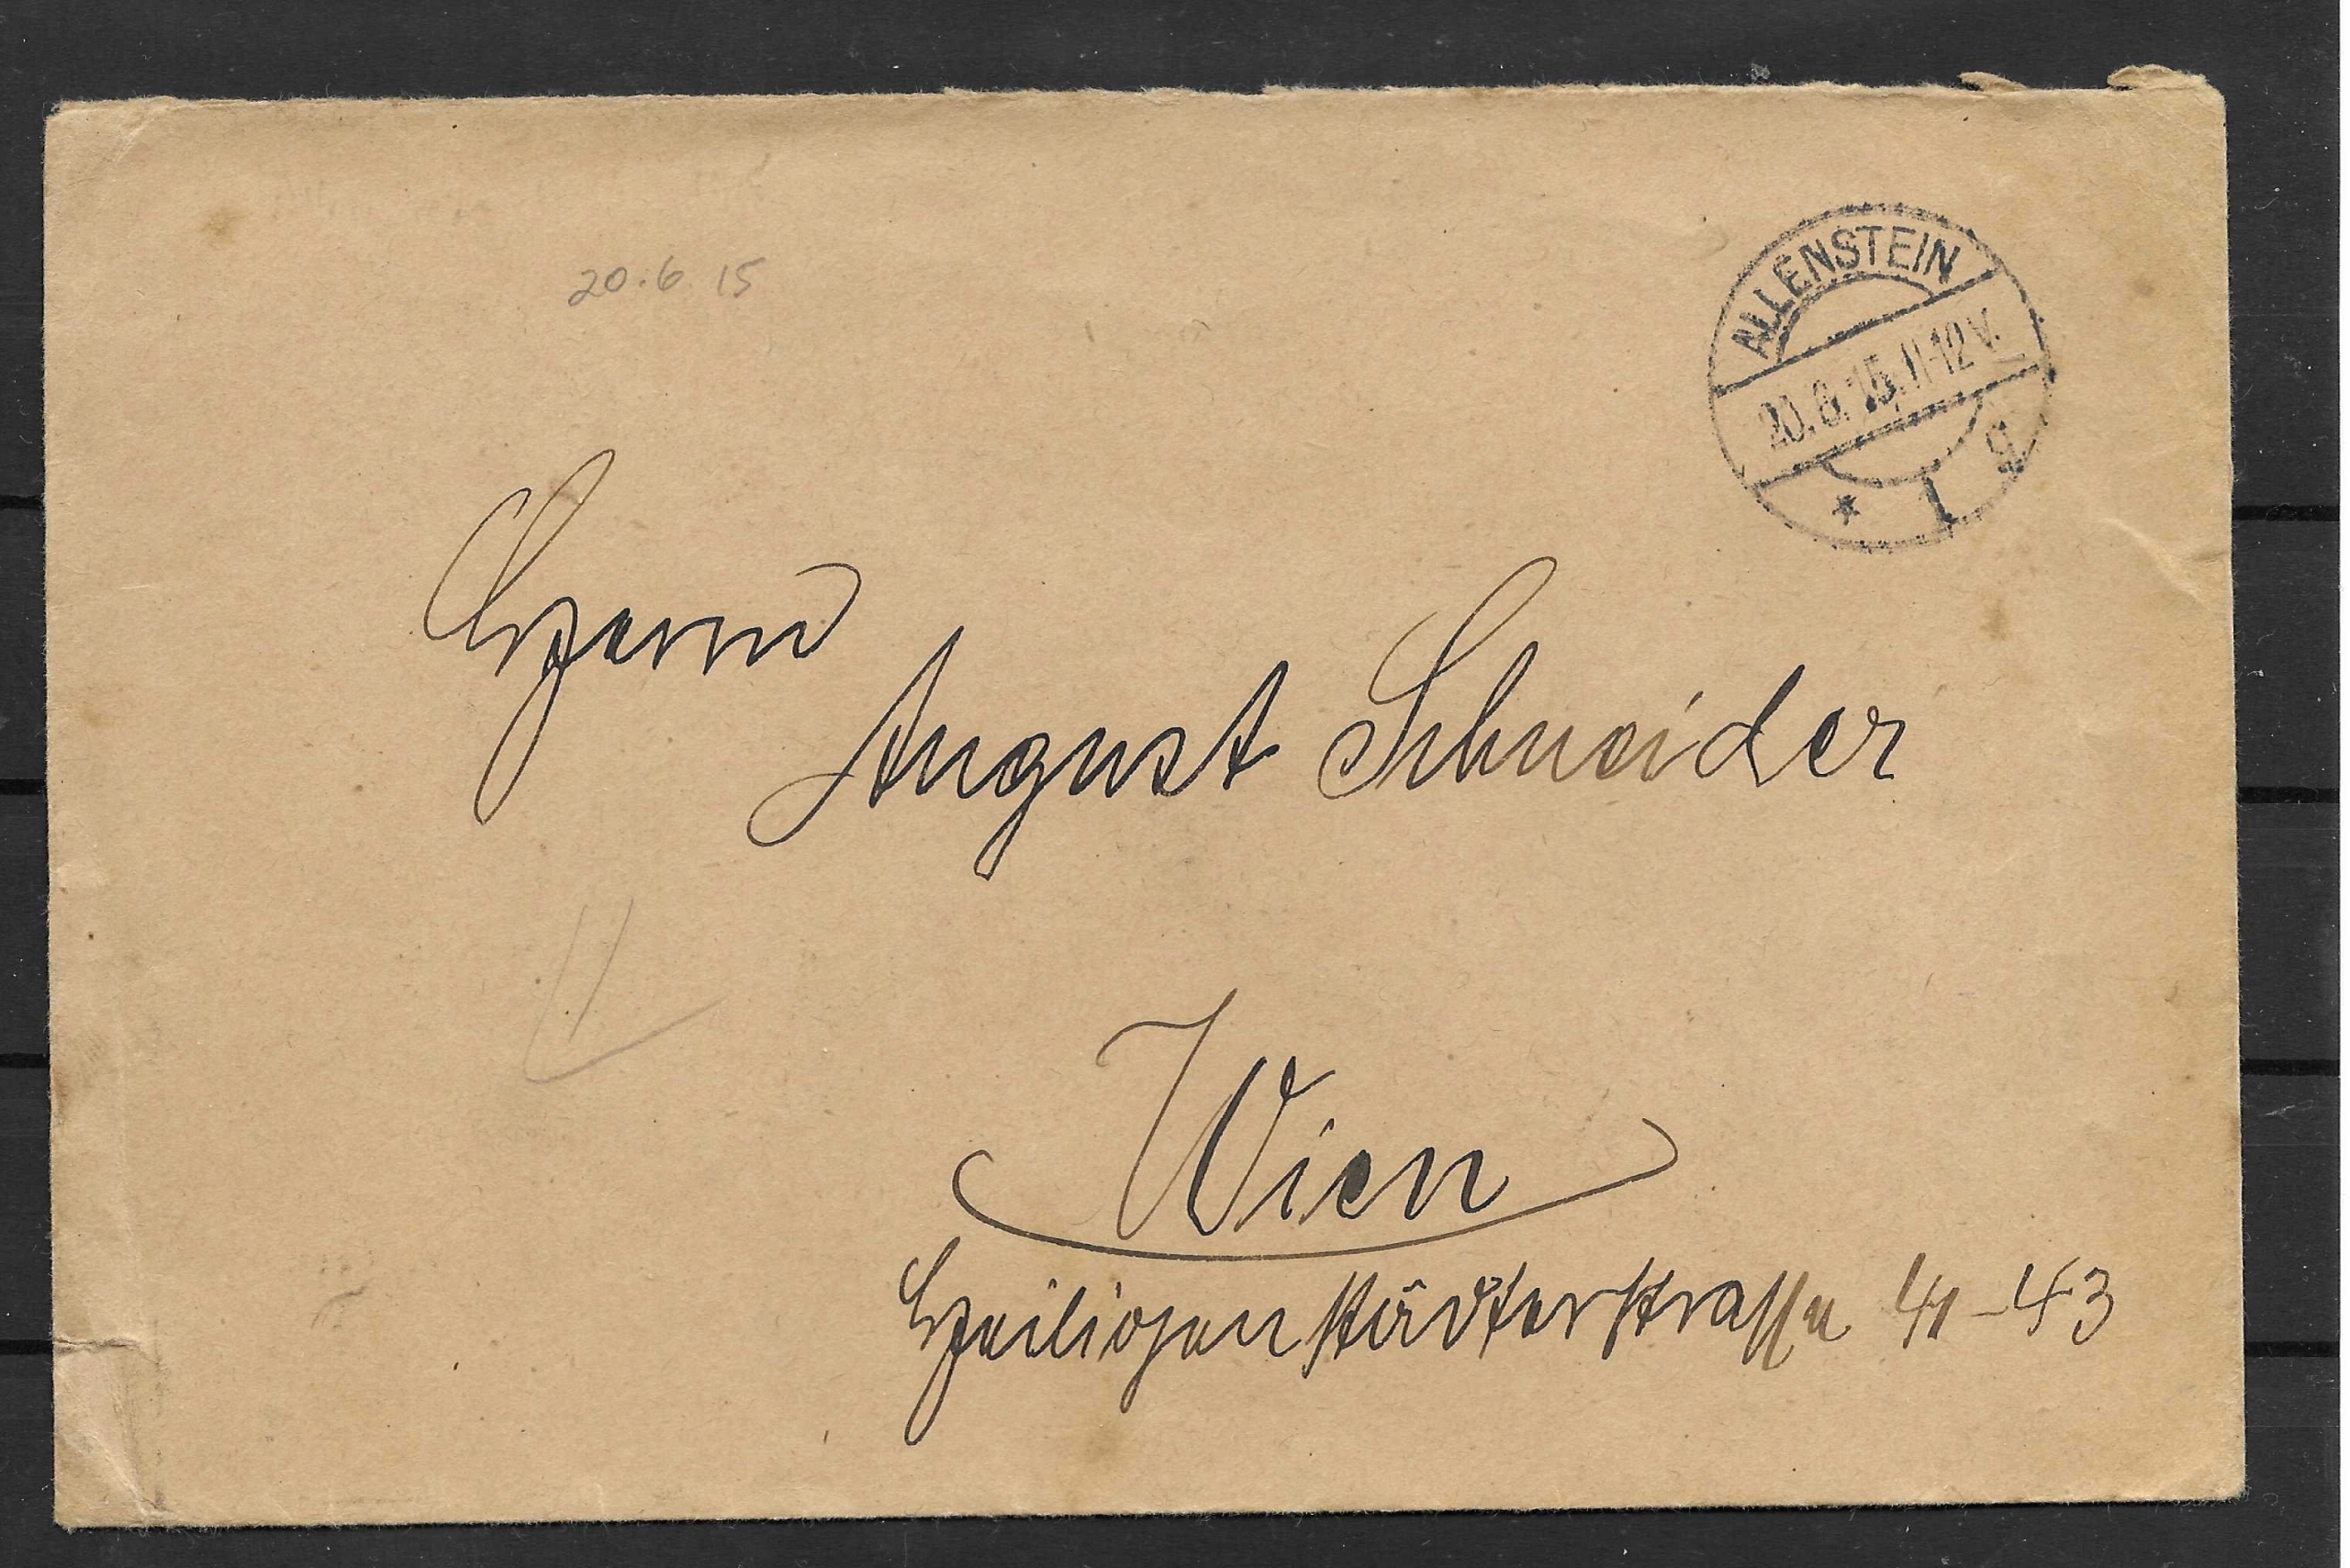 20.6.15
ALLENSTEIN
20.6.15.11-12V.
* 1 g
Herrn
August Schneider
Wien
Heiligenstädterstrasse 41-43